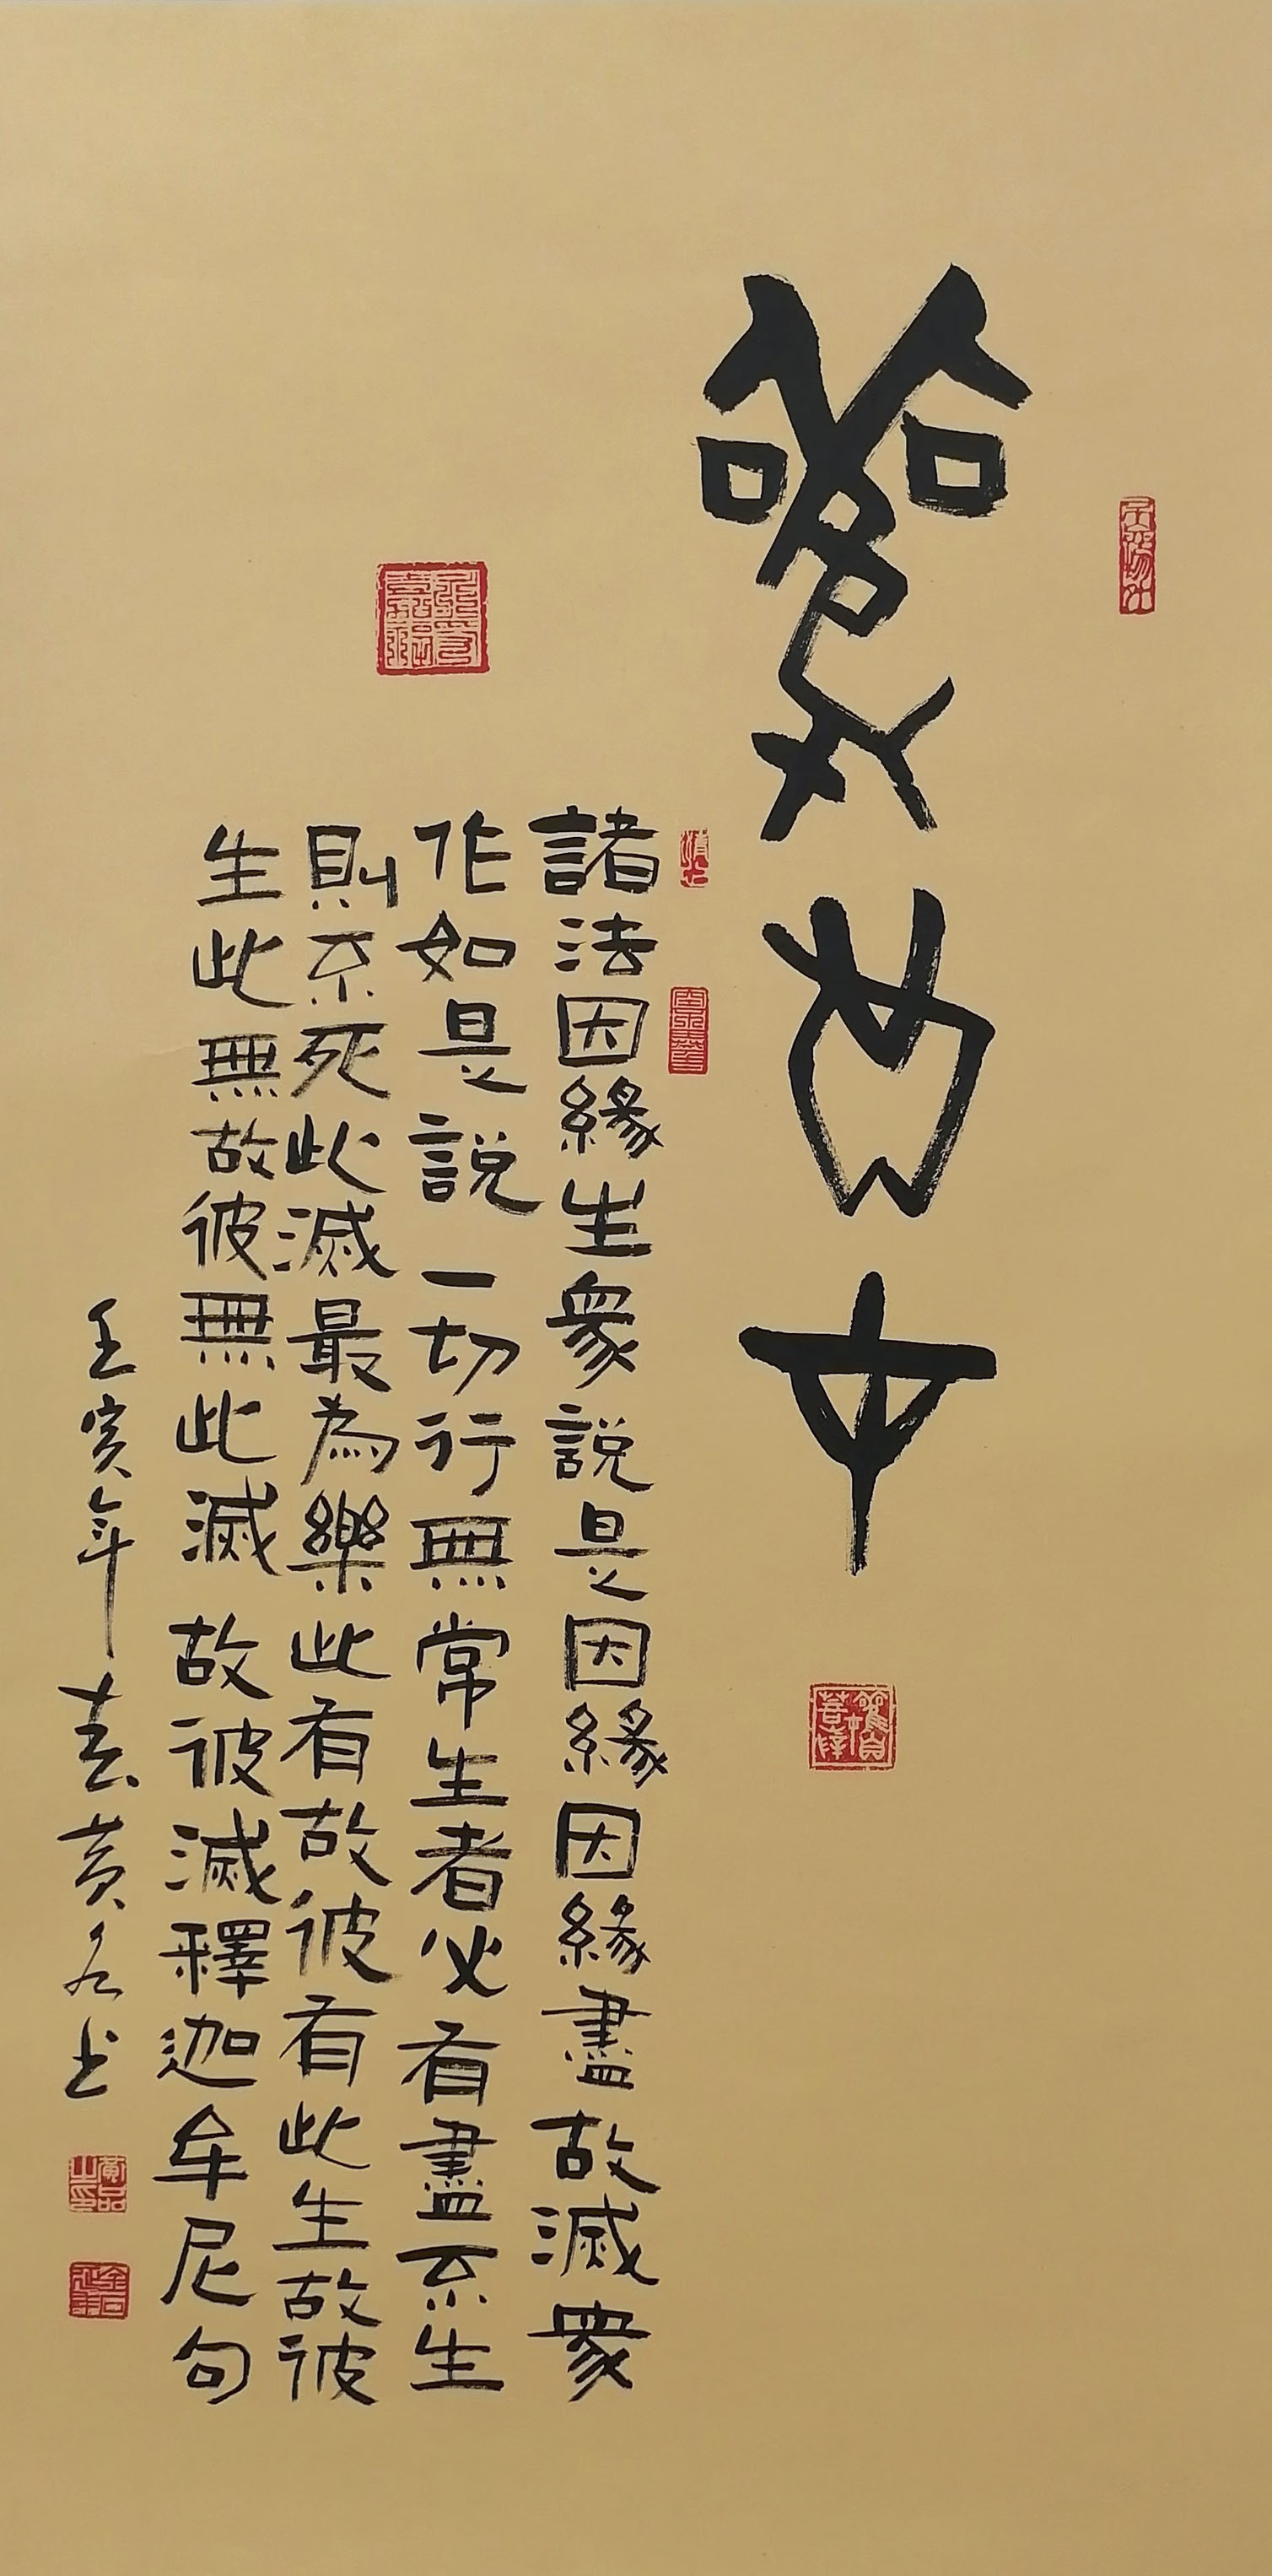 觀自在
諸法因緣生衆説是因緣因緣盡故滅衆
作如是説一切行無常生者必有盡不生
則不死此滅最為樂此有故彼有此生故彼
生此無故彼無此滅故彼滅釋迦牟尼句
壬寅年春黄书
黄品之印